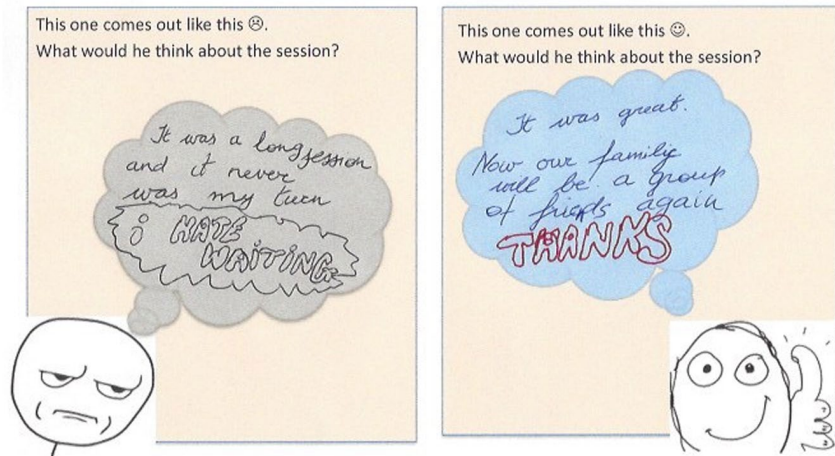 This one comes out like this ☹.
What would he think about the session?
It was a long session
and it never
was my turn
i HATE
WAITING
This one comes out like this ☺.
What would he think about the session?
It was great.
Now our family
will be a group
of friends again
THANKS